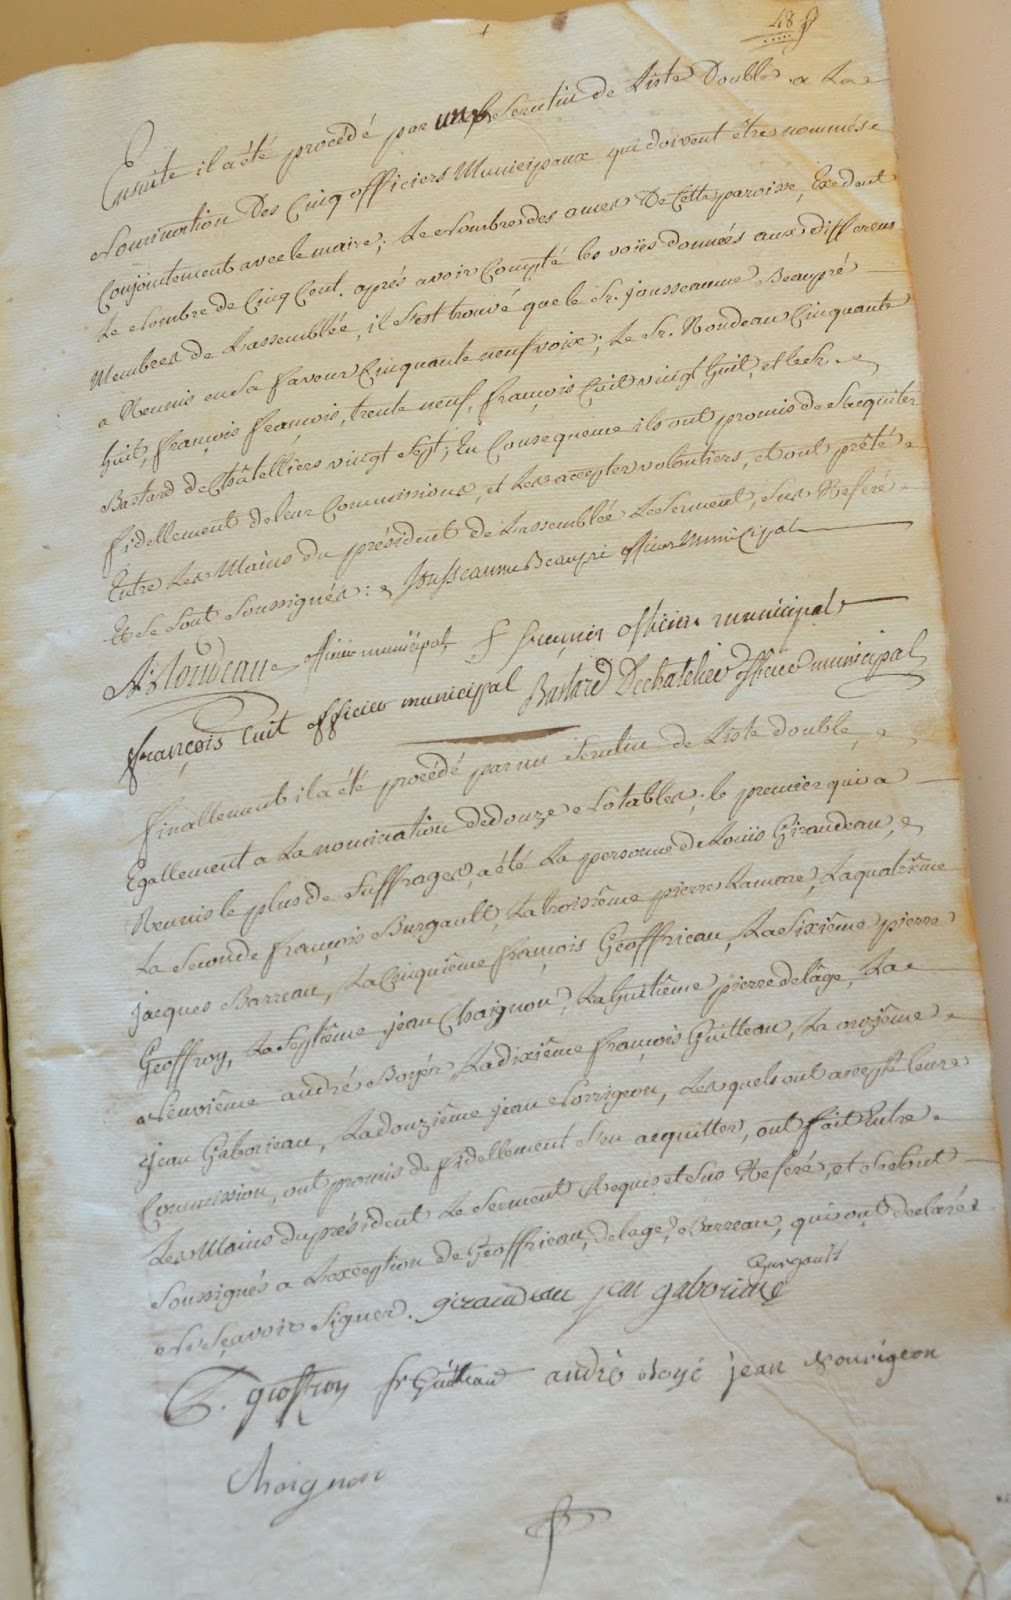 48
Ensuite il a été procédé par un Scrutin de Liste Double a La
Nomination Des Cinq officiers Municipaux qui doivent être nommés
Conjointement avec le maire, Le Nombre des ames De Cette paroisse, Exedent
Le Nombre de Cinq Cent. aprés avoir Compté les voïes données aux differens
Membres de Lassemblée, il s'est trouvé que le Sr. Jousseaume Beaupré
a Reunis en Sa faveur Cinquante neuf voix; Le Sr. Noudeau Cinquante
huit, François François, trente neuf, François Cuit vingt huit, et le Sr.
Bastard de Châtelliers vingt Sept; En Consequence ils ont promis de S'acquiter
fidellement de leur Commissions, et Les accepter volontiers, et ont prêté
Entre Les Mains du président de Lassemblée Le Serment, Sus Referé
Et Se Sont Soussignés: Jousseaume Beaupré officier Municipal
Noudeau officier municipal officier municipal
François Cuit officier municipal Bastard Dechatelier officier municipal
Finallement il a été procédé par un Scrutin de Liste double,
Egallement a La nomination de douze Notables; le premier qui a
Reunis le plus de Suffrages, a été La personne de Louis Giraudeau,
La Seconde François Burgault, La troisième pierre Lamore, La quatrième
Jacques Barreau, La Cinquième François Geoffrieau, La Sixième pierre
Geoffroy, La Septième Jean Chaignon, La huitième pierre delâge, La
Neuvième andré Boyér, La dixième François Guitteau, La onzième
Jean Gaborieau, La douzième Jean Norrigeon, Les quels ont accepté leurs
Commission, ont promis de fidellement S'en acquitter, ont fait Entre
Les Mains du président Le Serment Requis et Sus Referé, et Se Sont
Soussignés a L'exception de Geoffrieau, delage, Barreau, qui ont declarés
Ne Sçavoir Signer. giraudeau jean gaborieau
Burgault
geoffroy fr Guitteau andré boyé jean Nourigeon
Chaignon